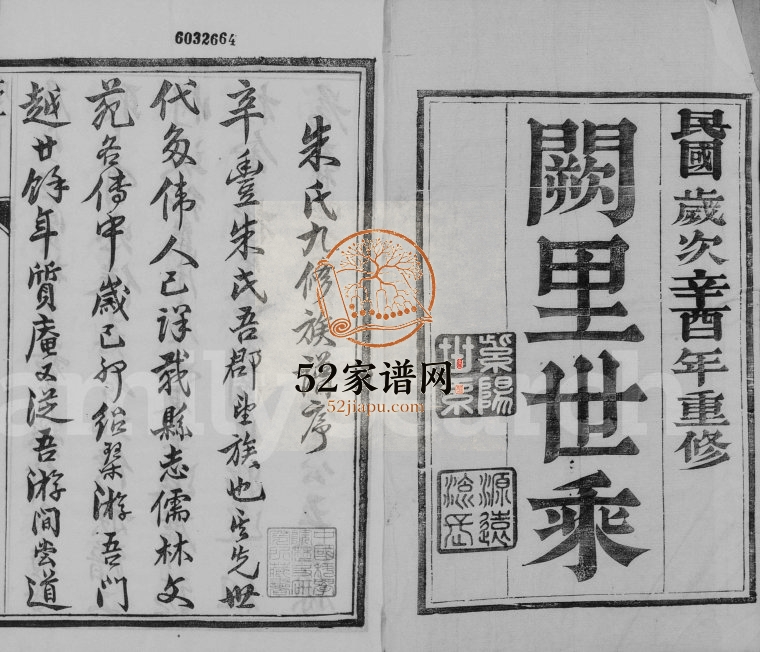 6032664
民國歲次辛酉年重修
闕里世乘
紫陽世系
源遠流長
朱氏九修族譜序
辛豐朱氏吾郡望族也其先世
代多偉人已詳載縣志儒林文
苑各傳中歲己卯紹琹游吾門
越廿餘年質庵又從吾游间尝道
52家谱网
52jiapu.com
familysearch